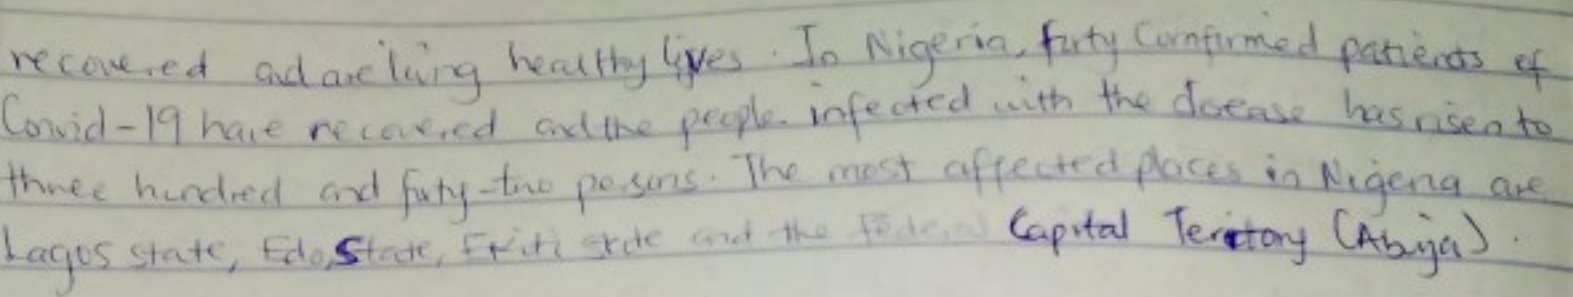 recovered and are living healthy lives. In Nigeria, forty Comfirmed patients of
Covid-19 have recovered and the people infected with the disease has risen to
three hundred and forty-two persons. The most affected places in Nigeria are
Lagos state, Edo State, Ekiti state and the Federal Capital Teritory (Abuja).